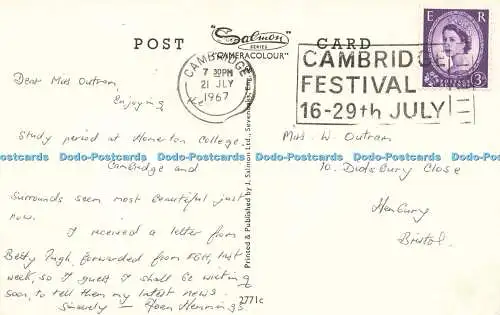 POST CARD
"Salmon
SERIES
"CAMERACOLOUR"
CAMBRIDGE
7 30PM
21 JLY
1967
CAMBRIDGE
FESTIVAL
16-29th JULY
E R
3D
Dear Miss Outram,
Enjoying the
study period at Homerton College.
Cambridge and
Surrounds seem most beautiful just
now.
I received a letter from
Betty Pugh, forwarded from last
week, so I guess I shall be writing
soon, to tell them my latest news.
Sincerely – Joan Hemmings
Miss. W. Outram
10. Didsbury Close
Henbury
Bristol.
Printed & Published by J. Salmon Ltd., Sevenoaks, Eng.
2771c
Dodo-Postcards Dodo-Postcards Dodo-Postcards Dodo-Postcards Dodo-Postcards